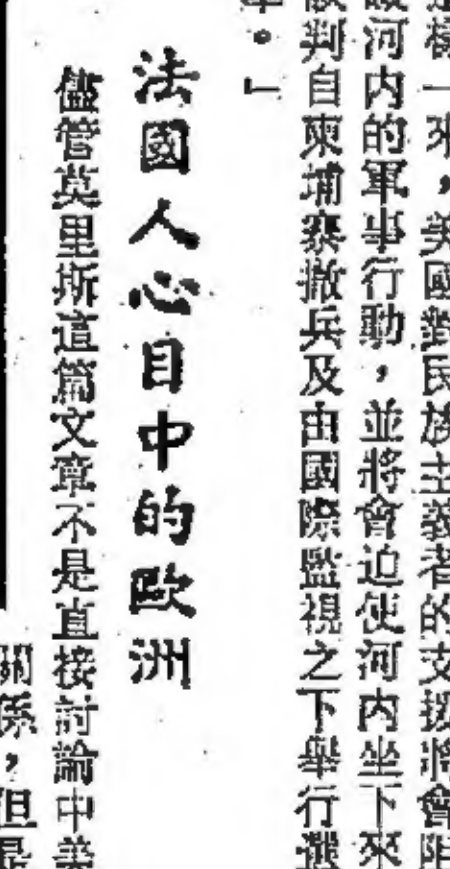 這樣一來，美國對民族主義者的支援將會阻
河內的軍事行動，並將會迫使河內坐下來
談判自柬埔寨撤兵及由國際監視之下舉行選
。」
法國人心目中的歐洲
儘管莫里斯這篇文章不是直接討論中美
關係，但是